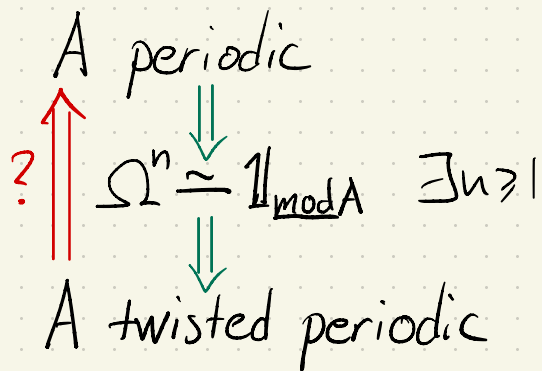 A periodic
? Ωⁿ ≃ 𝟙_mod A ∃n⩾1
A twisted periodic